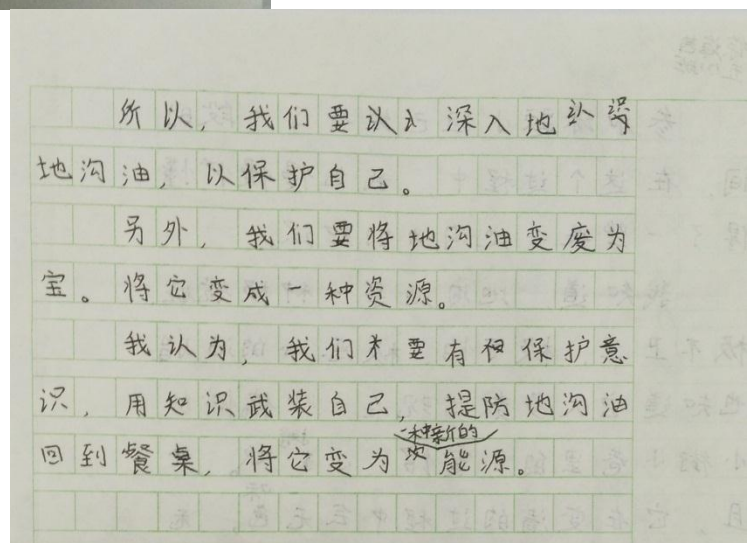 所以，我们要深入地认识
地沟油，以保护自己。
另外，我们要将地沟油变废为
宝。将它变成一种资源。
我认为，我们要有保护意
识，用知识武装自己，提防地沟油
回到餐桌，将它变为一种新的能源。